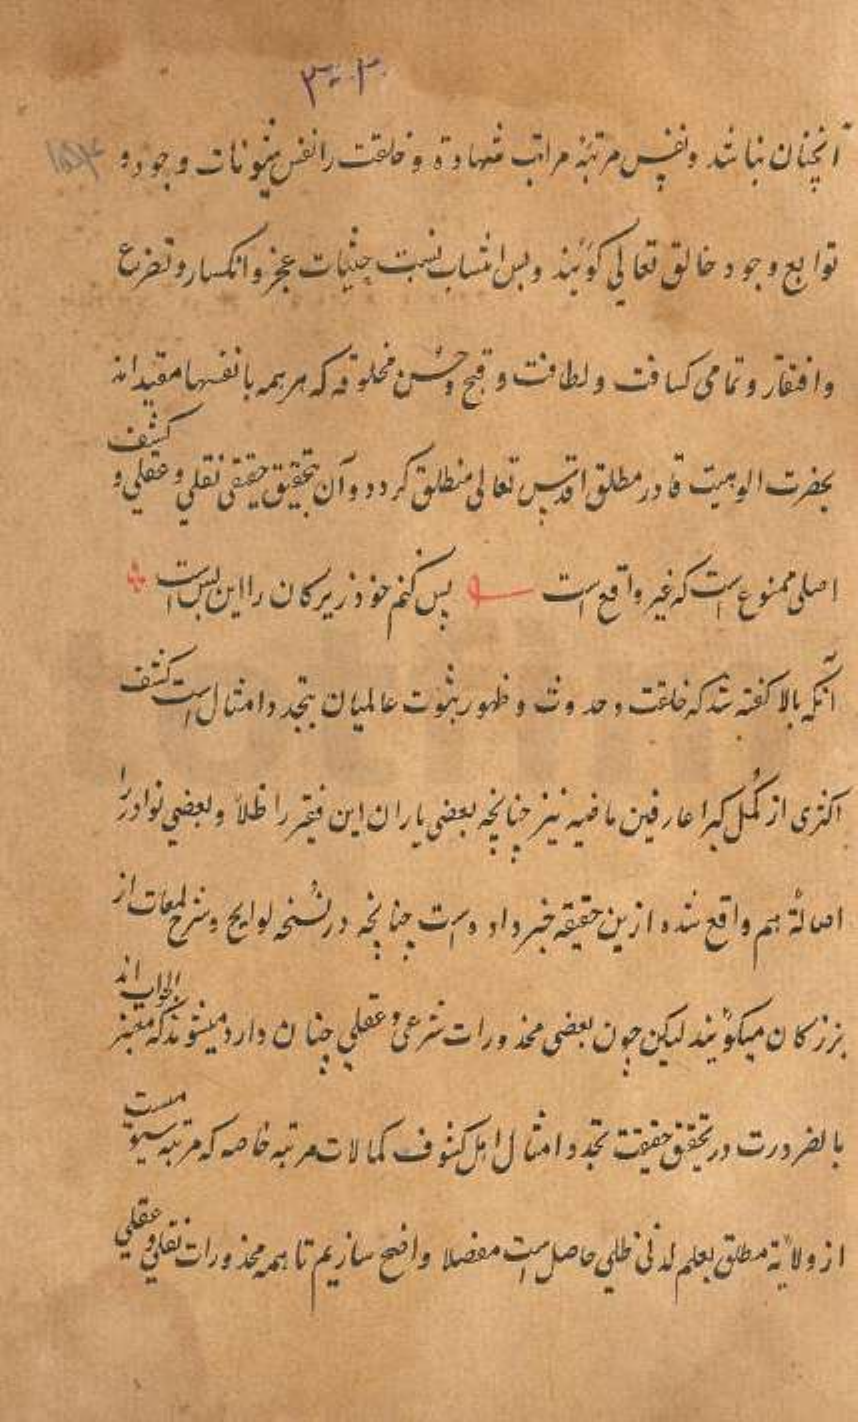 ۳۰۳
آنچنان نباشد ونفس مرتبهٔ مراتب شهادة و خلقت را نفس ثبوتات وجود و
توابع وجود خالق تعالی کویند وبس انتساب نسبت حیثیات عجز و انکسار و تضرع
وافتقار و تمامی کسافت و لطافت و قبح و حُسن مخلوقه که هر همه بانفسها مقیداند
بحضرت الوهیت قادر مطلق اقدس تعالی منطلق کردد و آن بتحقیق حقیقی نقلی و عقلی و کشف
اصلی ممنوع است که غیر واقع است پس کنم خود زیرکان را این بس است
آنکه بالا کفته شد که خلقت و حدوث و ظهور بثبوت عالمیان بتجدد امثال است کشف
اکثری از کُمل کبرا عارفین ماضیه نیز چنانچه بعضی یاران این فقیر را ظلاً و بعضی نوادر را
اصالةً هم واقع شده ازین حقیقه خبر داد وست چنانچه در نسُخه لوایح و شرح لمعات از
بزرکان میکویند لیکن چون بعضی محذورات شرعی و عقلی چنان دارد میشوند که معتبر الجواب اند
بالضرورت در تحقق حقیقت تجدد امثال اهل کشوف کمالات مرتبه خاصه که مرتبه سیوست
از ولایة مطلق بعلم لدنی ظلی حاصل است مفصلا واضح سازیم تا همه محذورات نقلی و عقلی